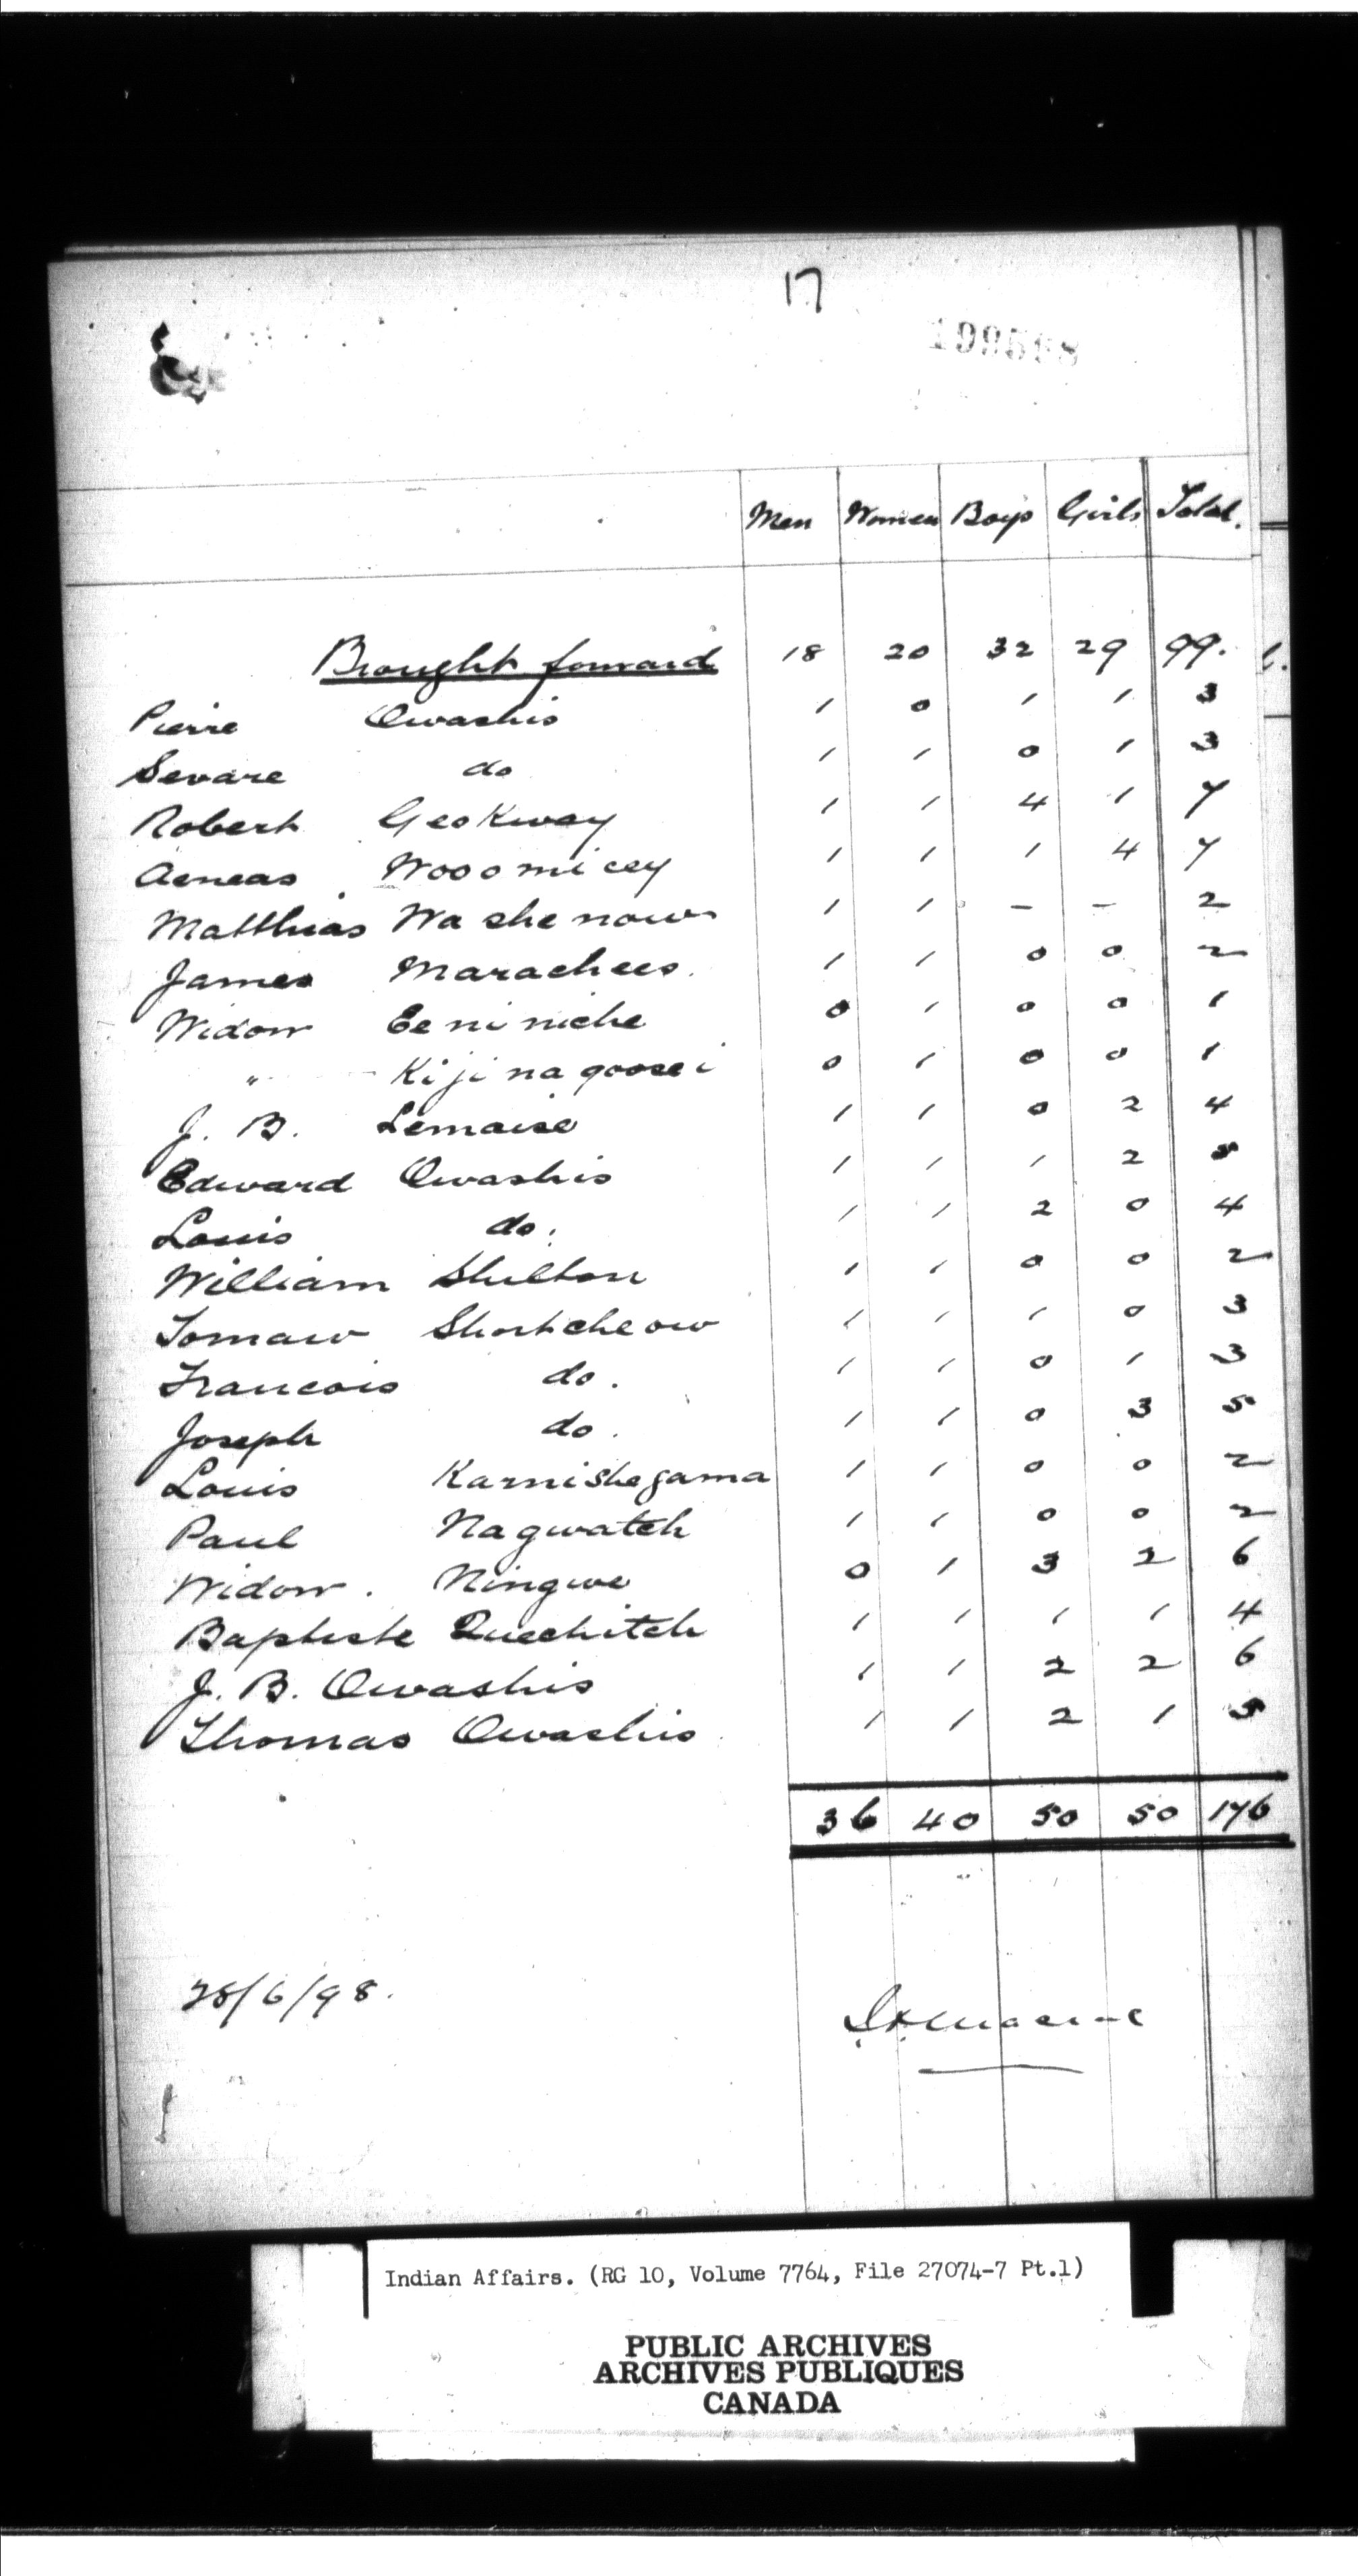 17
Men Women Boys Girls Total.
Brought forward 18 20 32 29 99.
Pierre Owashis 1 0 1 1 3
Sevare do 1 1 0 1 3
Robert Geokway 1 1 4 1 7
Aeneas Wooomicey 1 1 1 4 7
Matthias Washenow 1 1 - - 2
James Marachees. 1 1 0 0 2
Widow Eeniniche 0 1 0 0 1
" Kijinagoosei 0 1 0 0 1
J. B. Lemaise 1 1 0 2 4
Edward Owashis 1 1 1 2 5
Louis do. 1 1 2 0 4
William Shilton 1 1 0 0 2
Tomaw Shortcheow 1 1 1 0 3
Francois do. 1 1 0 1 3
Joseph do. 1 1 0 3 5
Louis Karnishegama 1 1 0 0 2
Paul Nagwatch 1 1 0 0 2
Widow. Ningwe 0 1 3 2 6
Baptiste Quechitch 1 1 1 1 4
J. B. Owashis 1 1 2 2 6
Thomas Owashis 1 1 2 1 5
36 40 50 50 176
28/6/98.
Indian Affairs. (RG 10, Volume 7764, File 27074-7 Pt.1)
PUBLIC ARCHIVES
ARCHIVES PUBLIQUES
CANADA